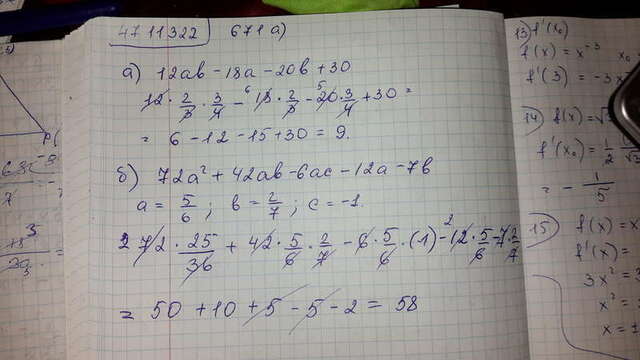 4711322 671 а)
а) 12ab - 18a - 20b + 30
12 · 2/3 · 3/4 - 18 · 2/3 - 20 · 3/4 + 30 =
= 6 - 12 - 15 + 30 = 9.
б) 72a² + 42ab - 6ac - 12a - 7b
a = 5/6 ; b = 2/7 ; c = -1.
2 72 · 25/36 + 42 · 5/6 · 2/7 - 6 · 5/6 · (-1) - 12 · 5/6 - 7 · 2/7
= 50 + 10 + 5 - 5 - 2 = 58
13) f'(x₀)
f(x) = x⁻³ x₀
f'(3) = -3x
14) f(x) = √
f'(x₀) = 1/2
= - 1/5
15) f(x) = x
f'(x) =
3x² =
x² =
x = 1